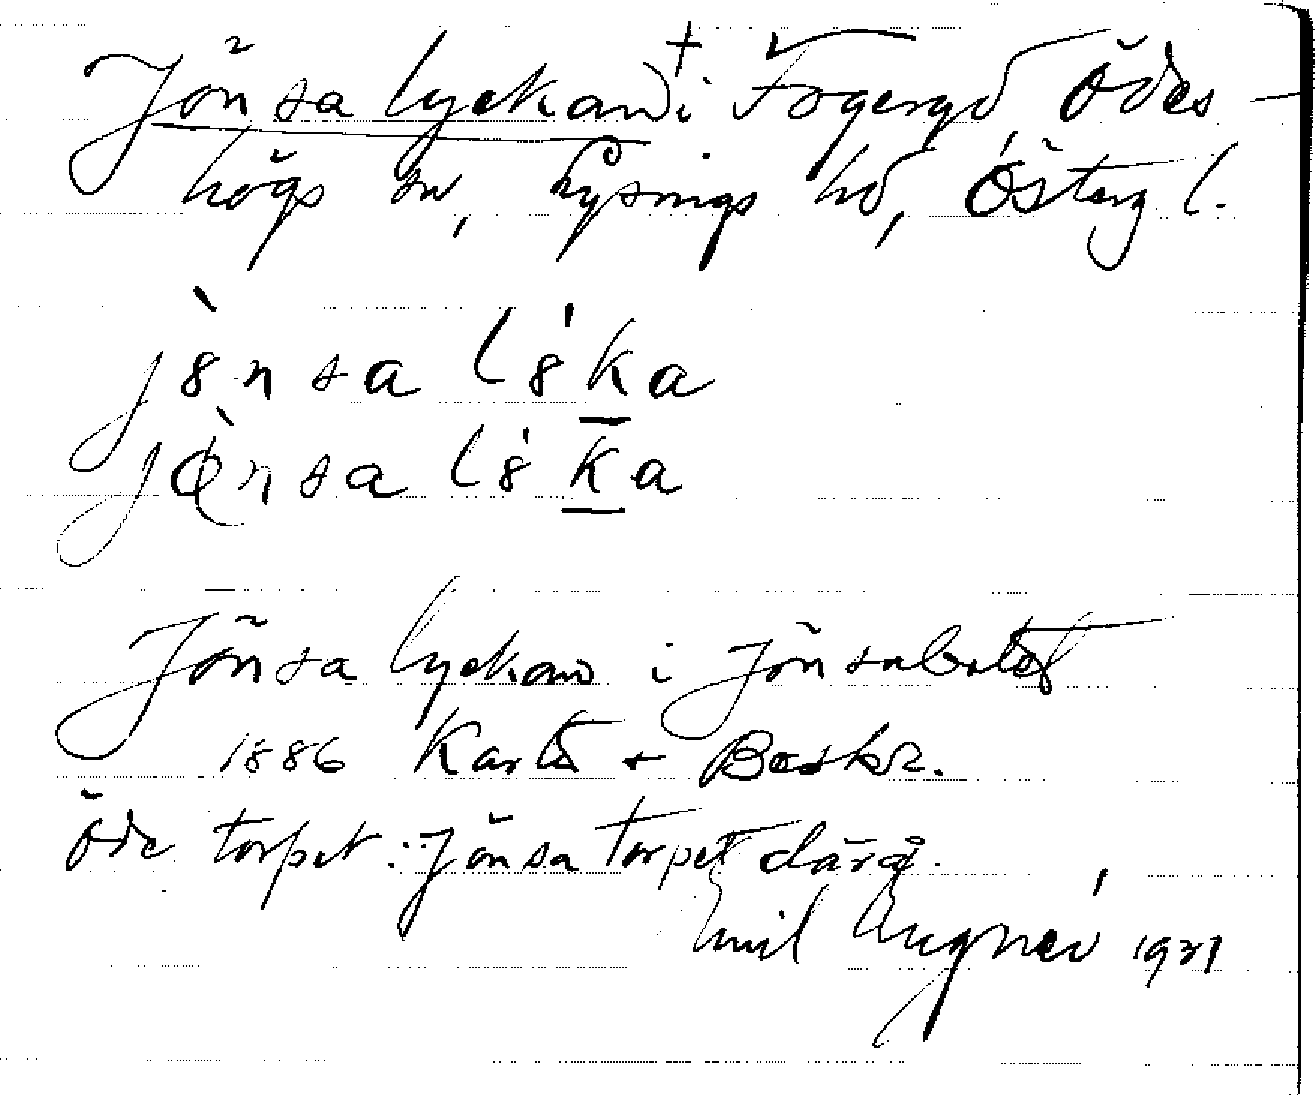 Jönsa lyckan † i Fogeryd, Ödes-
högs sn, Lysings hd, Österg l.
jònsa lś̍ka
jònsa lś̍ka
Jönsa lyckan i Jönsabolet
1886 Karta + Beskr.
Öde torpet: Jönsa torpet därå.
Emil 1921